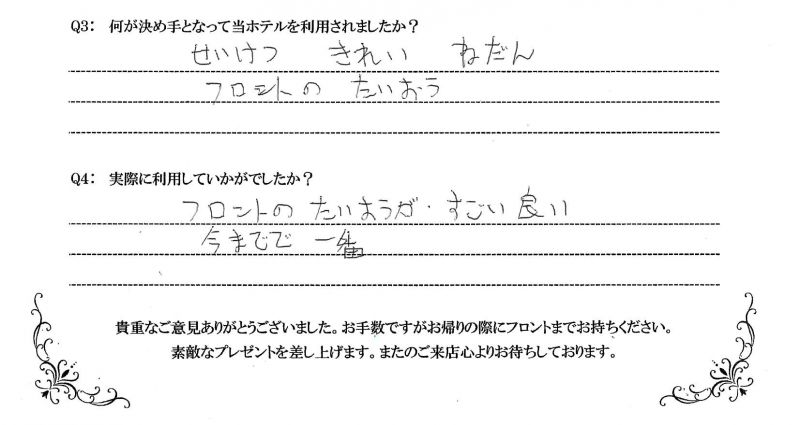 Q3: 何が決め手となって当ホテルを利用されましたか?
せいけつ きれい ねだん
フロントの たいおう
Q4: 実際に利用していかがでしたか?
フロントの たいおうが、すごい良い
今までで 一番
貴重なご意見ありがとうございました。お手数ですがお帰りの際にフロントまでお持ちください。
素敵なプレゼントを差し上げます。またのご来店心よりお待ちしております。